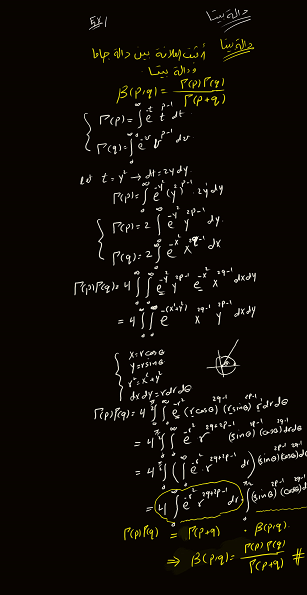 دالة بيتا
Ex/
دالة بيتا أثبت العلاقة بين دالة جاما
ودالة بيتا
β(p,q) = Γ(p)Γ(q) / Γ(p+q)
Γ(p) = ∫₀^∞ e^{-t} t^{p-1} dt
Γ(q) = ∫₀^∞ e^{-v} v^{p-1} dv
let t = y² → dt = 2y dy
Γ(p) = ∫₀^∞ e^{-y²} (y²)^{p-1} · 2y dy
Γ(p) = 2 ∫₀^∞ e^{-y²} y^{2p-1} dy
Γ(q) = 2 ∫₀^∞ e^{-x²} x^{2q-1} dx
Γ(p)Γ(q) = 4 ∫₀^∞ ∫₀^∞ e^{-y²} y^{2p-1} e^{-x²} x^{2q-1} dx dy
= 4 ∫₀^∞ ∫₀^∞ e^{-(x²+y²)} x^{2q-1} y^{2p-1} dx dy
x = r cosθ
y = r sinθ
r² = x² + y²
dx dy = r dr dθ
Γ(p)Γ(q) = 4 ∫ ∫₀^∞ e^{-r²} (r cosθ)^{2q-1} (r sinθ)^{2p-1} r dr dθ
= 4 ∫ ∫₀^∞ e^{-r²} r^{2q+2p-1} (sinθ)^{2p-1} (cosθ)^{2q-1} dr dθ
= 4 ∫ (∫₀^∞ e^{-r²} · r^{2q+2p-1} dr) (sinθ)^{2p-1} (cosθ)^{2q-1} dθ
= 4 ∫₀^∞ e^{-r²} r^{2q+2p-1} dr ∫ (sinθ)^{2p-1} (cosθ)^{2q-1} dθ
Γ(p)Γ(q) = Γ(p+q) · β(p,q)
⇒ β(p,q) = Γ(p)Γ(q) / Γ(p+q) #